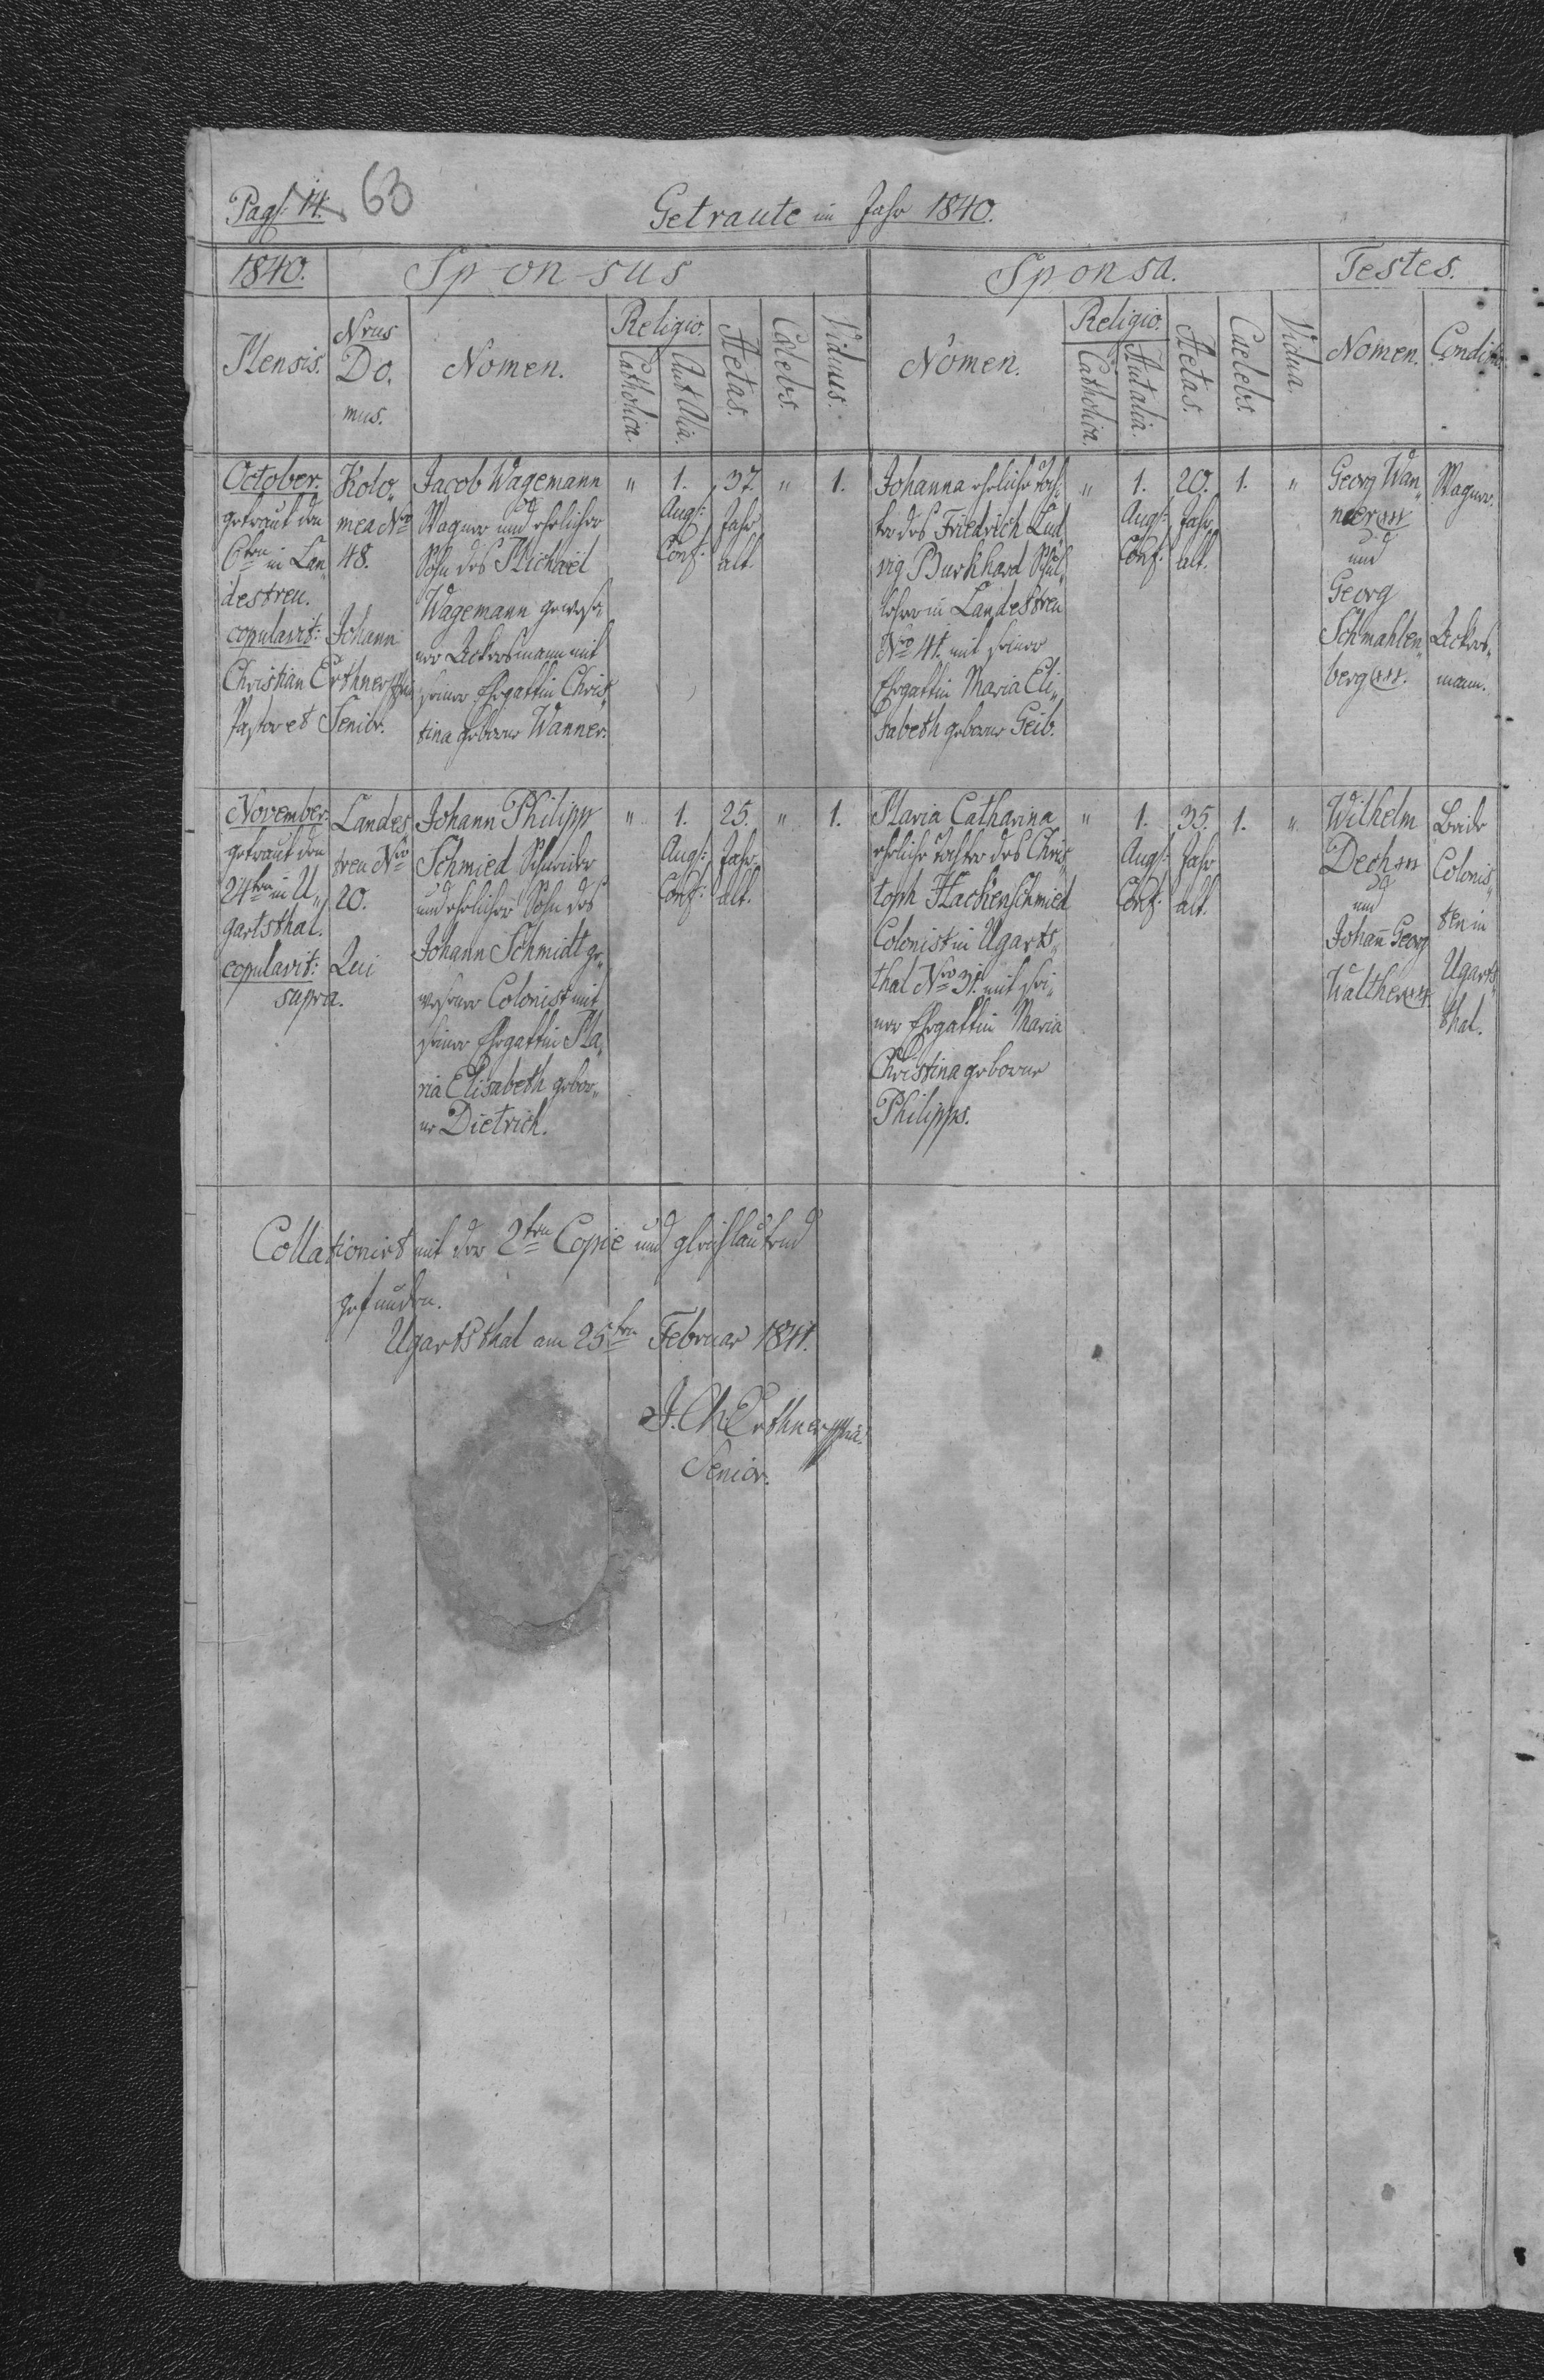 Pag: 14. 63
Getraute im Jahr 1840.
1840. Sponsus Sponsa. Testes.
Mensis. Nrus Domus. Nomen. Religio. Catholica. Aut Alia. Aetas. Caelebs. Viduus. Nomen. Religio. Catholica. Aut alia. Aetas. Caelebs. Vidua. Nomen. Conditio.
October.
getraut den
6ten in Lan„
destreu.
copulavit: Johann
Christian Erthner
Pastor et Senior.
Kolo„
mea Nro
48.
Jacob Wagemann
Wagner und ehelicher
Sohn des Michael
Wagemann gewese„
ner Ackersmann mit
seiner Ehegattin Chris„
tina geborne Wanner.
"
1.
Augs:
Conf:
37.
Jahr
alt.
"
1.
Johanna eheliche Toch„
ter des Friedrich Lud„
wig Burkhard Schul„
lehrer in Landestreu
Nro 41. mit seiner
Ehegattin Maria Eli„
sabeth geborne Geib.
"
1.
Augs:
Conf:
20.
Jahr
alt.
1.
"
Georg Wan„
ner
und
Georg
Schmahlen„
berg
Wagner.
Ackers„
mann.
November.
getraut den
24ten in U„
gartsthal.
copulavit: Qui
supra.
Landes„
treu Nro
20.
Johann Philipp
Schmied Schneider
und ehelicher Sohn des
Johann Schmidt ge„
wesener Colonist mit
seiner Ehegattin Ma„
ria Elisabeth gebor„
ne Dietrich.
"
1.
Augs:
Conf:
25.
Jahr
alt.
"
1.
Maria Catharina
eheliche Tochter des Chris„
toph Hackenschmied
Colonist in Ugarts„
thal Nro 31. mit sei„
ner Ehegattin Maria
Christina geborne
Philipps.
"
1.
Augs:
Conf:
35.
Jahr
alt.
1.
"
Wilhelm
Dech
und
Johañ Georg
Walther
Beide
Colonis„
ten in
Ugarts„
thal.
Collationirt mit der 2ten Copie und gleichlautend
gefunden.
Ugartsthal am 25ten Februar 1841.
J. Ch. Erthner
Senior.